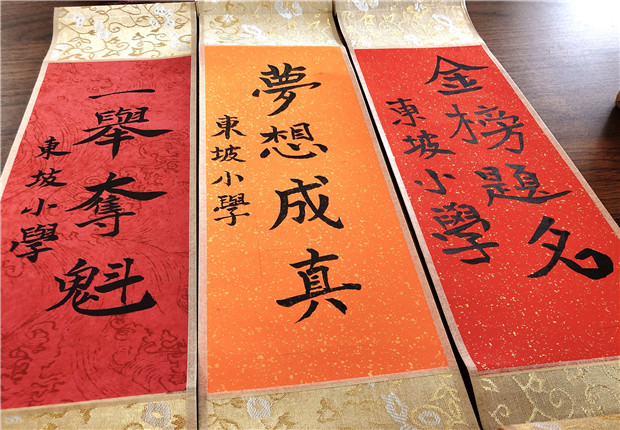 一舉奪魁
東坡小學
夢想成真
東坡小學
金榜題名
東坡小學